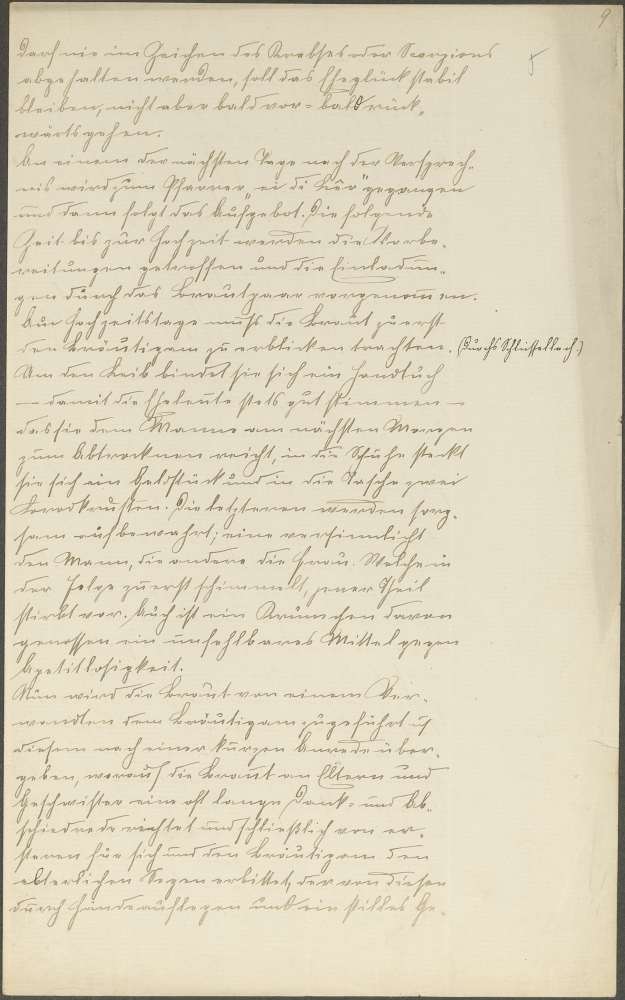 9
5
darf nie im Zeichen des Krebses oder Scorpions
abgehalten werden, soll das Eheglück stabil
bleiben, nicht aber bald vor- bald rück-
wärts gehen.
An einem der nächsten Tage nach der Versprech-
nis wird zum Pfarrer „ei de Lier" gegangen
und dann folgt das Aufgebot. Die folgende
Zeit bis zur Hochzeit werden die Vorbe-
reitungen getroffen und die Einladun-
gen durch das Brautpaar vorgenommen.
Am Hochzeitstage muß die Braut zuerst
den Bräutigam zu erblicken trachten. (Durchs Schlüsselloch)
Um den Leib bindet sie sich ein Handtuch
— damit die Eheleute stets gut stimmen —
das sie dem Manne am nächsten Morgen
zum Abtrocknen reicht, in die Schuhe steckt
sie sich ein Geldstück und in die Tasche zwei
Brodkrusten. Die letzteren werden sorg-
sam aufbewahrt; eine versinnlicht
den Mann, die andere die Frau. Welche in
der Folge zuerst schimmelt, jener Theil
stirbt vor. Auch ist ein Krümchen davon
genossen ein unfehlbares Mittel gegen
Apetitlosigkeit.
Nun wird die Braut von einem Ver-
wandten dem Bräutigam zugeführt u
diesem nach einer kurzen Anrede über-
geben, worauf die Braut an Eltern und
Geschwister eine oft lange Dank- und Ab-
schiedrede richtet und schließlich von er-
steren für sich und den Bräutigam den
elterlichen Segen erbittet, der von diesen
durch Händeauflegen und ein stilles Ge-